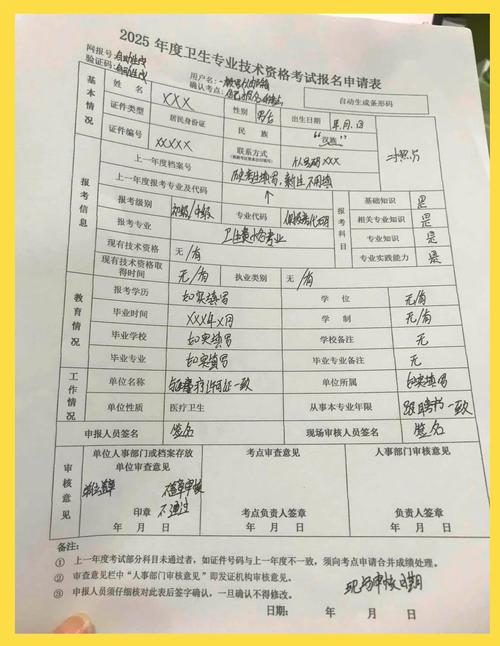 2025 年度卫生专业技术资格考试报名申请表
网报号：自动生成
验证码：自动生成
用户名：
确认考点：
自动生成条形码
基本情况
姓名 XXX 性别 男/女 出生日期 年.月.日
证件类型 居民身份证 民族 "汉族"
证件编号 XXXXX 联系方式 XXX
报考信息
上一年度档案号
上一年度报考专业及代码 历史考生填写，新生不用填
报考级别 初级/中级 专业代码 报考科目 基础知识 是
报考专业 相关专业知识 是
现有技术资格 无/有 专业知识 是
现有技术资格取得时间 无/有 执业类别 无/有 专业实践能力 是
教育情况
报考学历 如实填写 学位 无/有
毕业时间 XXX年X月 学制 无/有
毕业学校 如实填写 学校备注 无
毕业专业 如实填写 毕业专业备注 无
工作情况
单位名称 与医疗许可证一致 单位所属 如实填写
单位性质 医疗卫生 从事本专业年限 跟聘书一致
申报人员签名 签名 现场审核人员签名 签名
审核意见
单位人事部门或档案存放单位审查意见 考点审查意见 人事部门审核意见
不盖章审核不通过
印章 考点负责人签章 负责人签章
年 月 日 年 月 日 年 月 日
备注：
① 上一年度考试部分科目未通过者，如证件号码与上一年度不一致，须向考点申请合并成绩处理。
② 审查意见栏中"人事部门审核意见"即发证机构审核意见。
③ 申报人员须仔细核对此表后签字确认，一旦确认不得修改。
现场审核日期
日期： 年 月 日